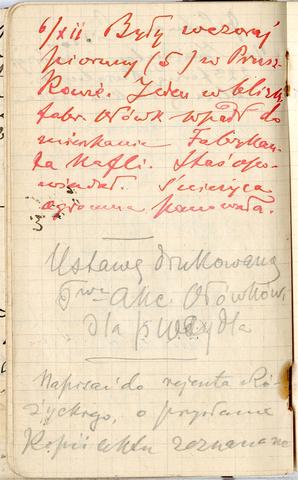 6/xii. Były wczoraj
pioruny (5) w Prusz
kowie. Jeden w blisk.
fabr. Ołówk wpadł do
mieszkania Fabrykan
ta Kafli. Staś opo-
wiadał. Śnieżyca
ogromna panowała.
Ustawę drukowaną
Twa Akc. Ołówków
dla
Napisać do rejenta Ró-
życkiego, o przysłanie
Kopii aktu zeznana